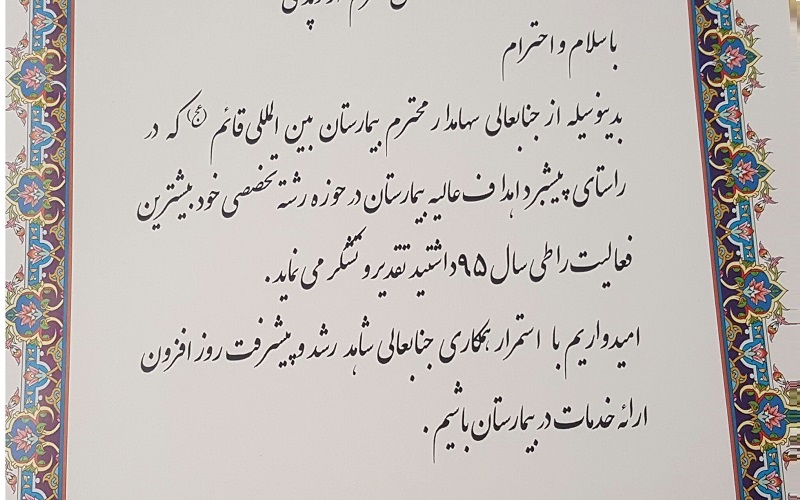 با سلام و احترام
بدینوسیله از جنابعالی سهامدار محترم بیمارستان بین المللی قائم (عج) که در
راستای پیشبرد اهداف عالیه بیمارستان در حوزه رشته تخصصی خود بیشترین
فعالیت را طی سال ۹۵ داشتید تقدیر و تشکر می نماید.
امیدواریم با استمرار همکاری جنابعالی شاهد رشد و پیشرفت روز افزون
ارائه خدمات در بیمارستان باشیم.